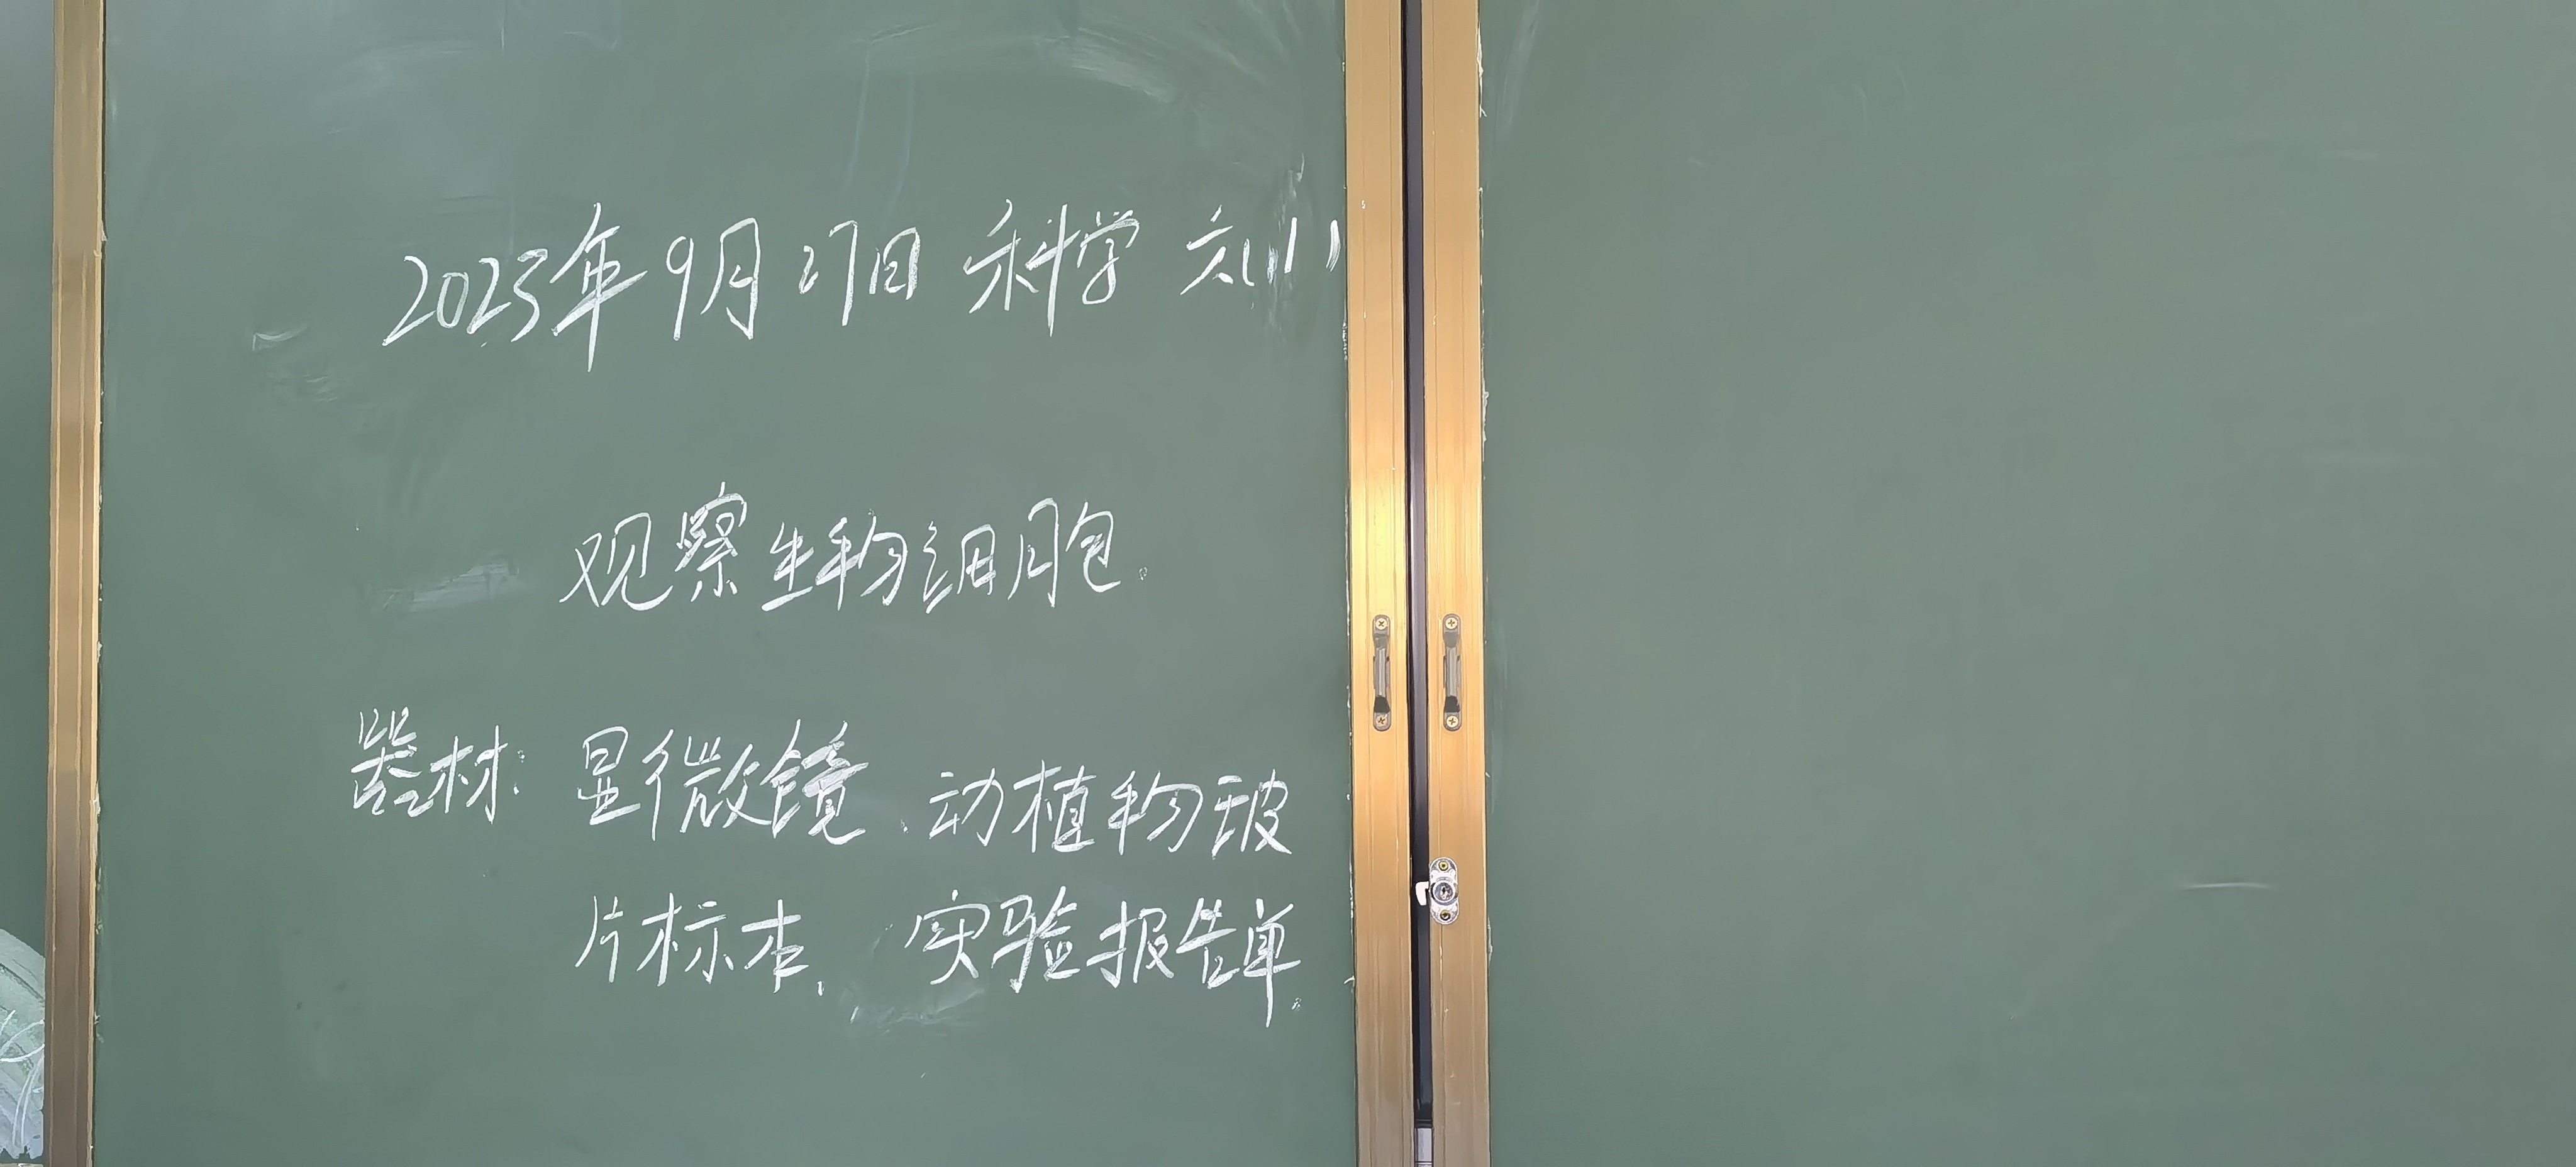 2023年9月27日 科学 六(1)
观察生物细胞.
器材: 显微镜、动植物玻
片标本、实验报告单.